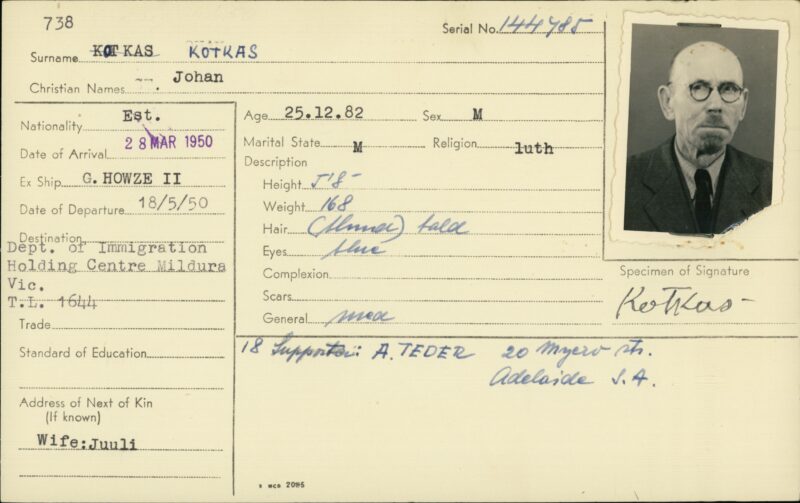 738
Serial No. 144785
Surname KOTKAS KOTKAS
Christian Names Johan
Nationality Est.
Date of Arrival 28 MAR 1950
Ex Ship G. HOWZE II
Date of Departure 18/5/50
Destination
Dept. of Immigration
Holding Centre Mildura
Vic.
T.L. 1644
Trade
Standard of Education
Address of Next of Kin
(If known)
Wife:Juuli
Age 25.12.82 Sex M
Marital State M Religion luth
Description
Height 5'8"
Weight 168
Hair (blond) bald
Eyes blue
Complexion
Scars
General med
Specimen of Signature
Kotkas
18 Supporter: A. TEDER 20 str.
Adelaide S.A.
WCB 2095